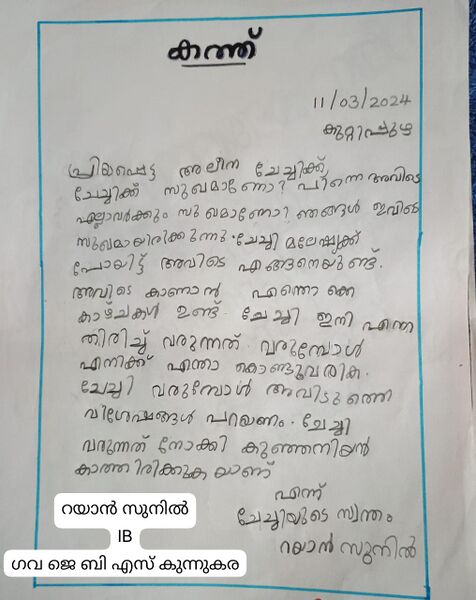 കത്ത്
11/03/2024
കുറ്റിപ്പുഴ
പ്രിയപ്പെട്ട അലീന ചേച്ചിക്ക്,
ചേച്ചിക്ക് സുഖമാണോ? പിന്നെ അവിടെ
എല്ലാവർക്കും സുഖമാണോ? ഞങ്ങൾ ഇവിടെ
സുഖമായിരിക്കുന്നു. ചേച്ചി മലേഷ്യക്ക്
പോയിട്ട് അവിടെ എങ്ങനെയുണ്ട്.
അവിടെ കാണാൻ എന്തൊക്കെ
കാഴ്ചകൾ ഉണ്ട്. ചേച്ചി ഇനി എന്ന
തിരിച്ച് വരുന്നത്. വരുമ്പോൾ
എനിക്ക് എന്താ കൊണ്ടുവരിക.
ചേച്ചി വരുമ്പോൾ അവിടുത്തെ
വിശേഷങ്ങൾ പറയണം. ചേച്ചി
വരുന്നത് നോക്കി കുഞ്ഞനിയൻ
കാത്തിരിക്കുകയാണ്
എന്ന്
ചേച്ചിയുടെ സ്വന്തം
റയാൻ സുനിൽ
റയാൻ സുനിൽ
IB
ഗവ ജെ ബി എസ് കുന്നുകര